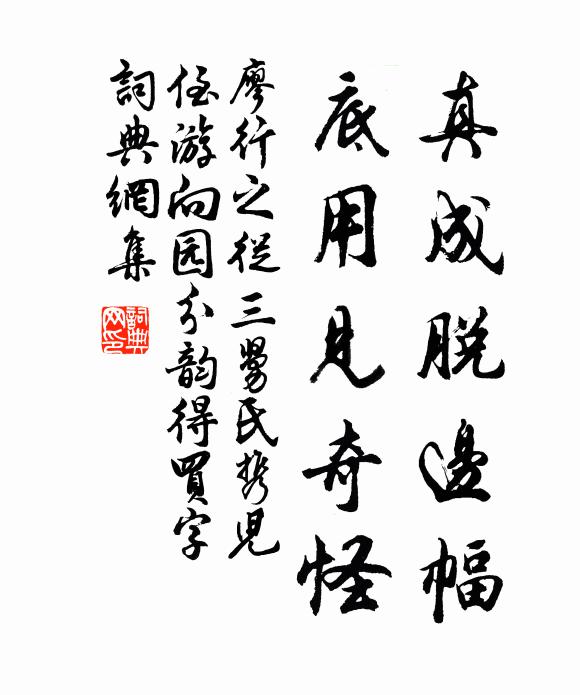 真成脫邊幅
底用見奇怪
廖行之從三舅氏携児
侄游向园分韵得買字
詞典網集
詞典网印